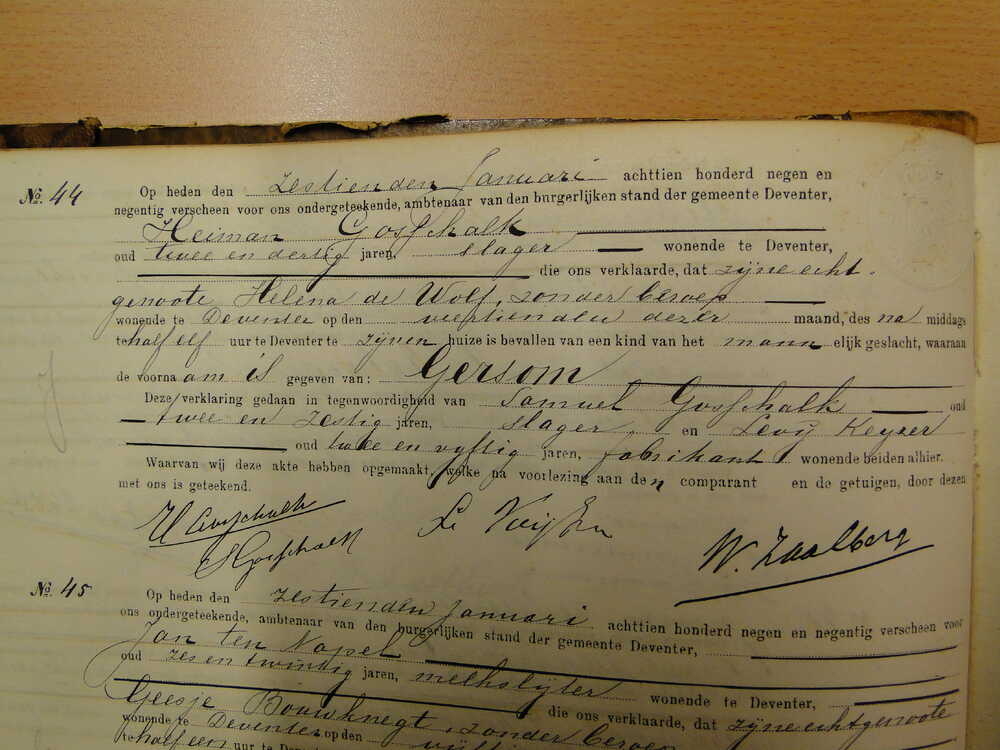 No. 44
Op heden den zestienden Januari achttien honderd negen en
negentig verscheen voor ons ondergeteekende, ambtenaar van den burgerlijken stand der gemeente Deventer,
Heiman Gosschalk
oud twee en dertig jaren, slager wonende te Deventer,
die ons verklaarde, dat zijne echt-
genoote Helena de Wolf, zonder beroep
wonende te Deventer op den veertienden dezer maand, des na middags
te half elf uur te Deventer te zijnen huize is bevallen van een kind van het mann elijk geslacht, waaraan
de voorna am is gegeven van: Gersom
Deze verklaring gedaan in tegenwoordigheid van Samuel Gosschalk oud
twee en zestig jaren, slager, en Levij Keyzer
oud twee en vijftig jaren, fabrikant wonende beiden alhier.
Waarvan wij deze akte hebben opgemaakt, welke na voorlezing aan den comparant en de getuigen, door dezen
met ons is geteekend.
H Gosschalk
S Gosschalk
W. Zaalberg
No. 45
Op heden den zestienden Januari achttien honderd negen en negentig verscheen voor
ons ondergeteekende, ambtenaar van den burgerlijken stand der gemeente Deventer,
Jan ten Napel
oud zes en twintig jaren, melkslijter wonende te Deventer,
die ons verklaarde, dat zijne echtgenoote
Geesje Bouwknegt, zonder beroep
wonende te Deventer op den
te half een uur te Deventer te